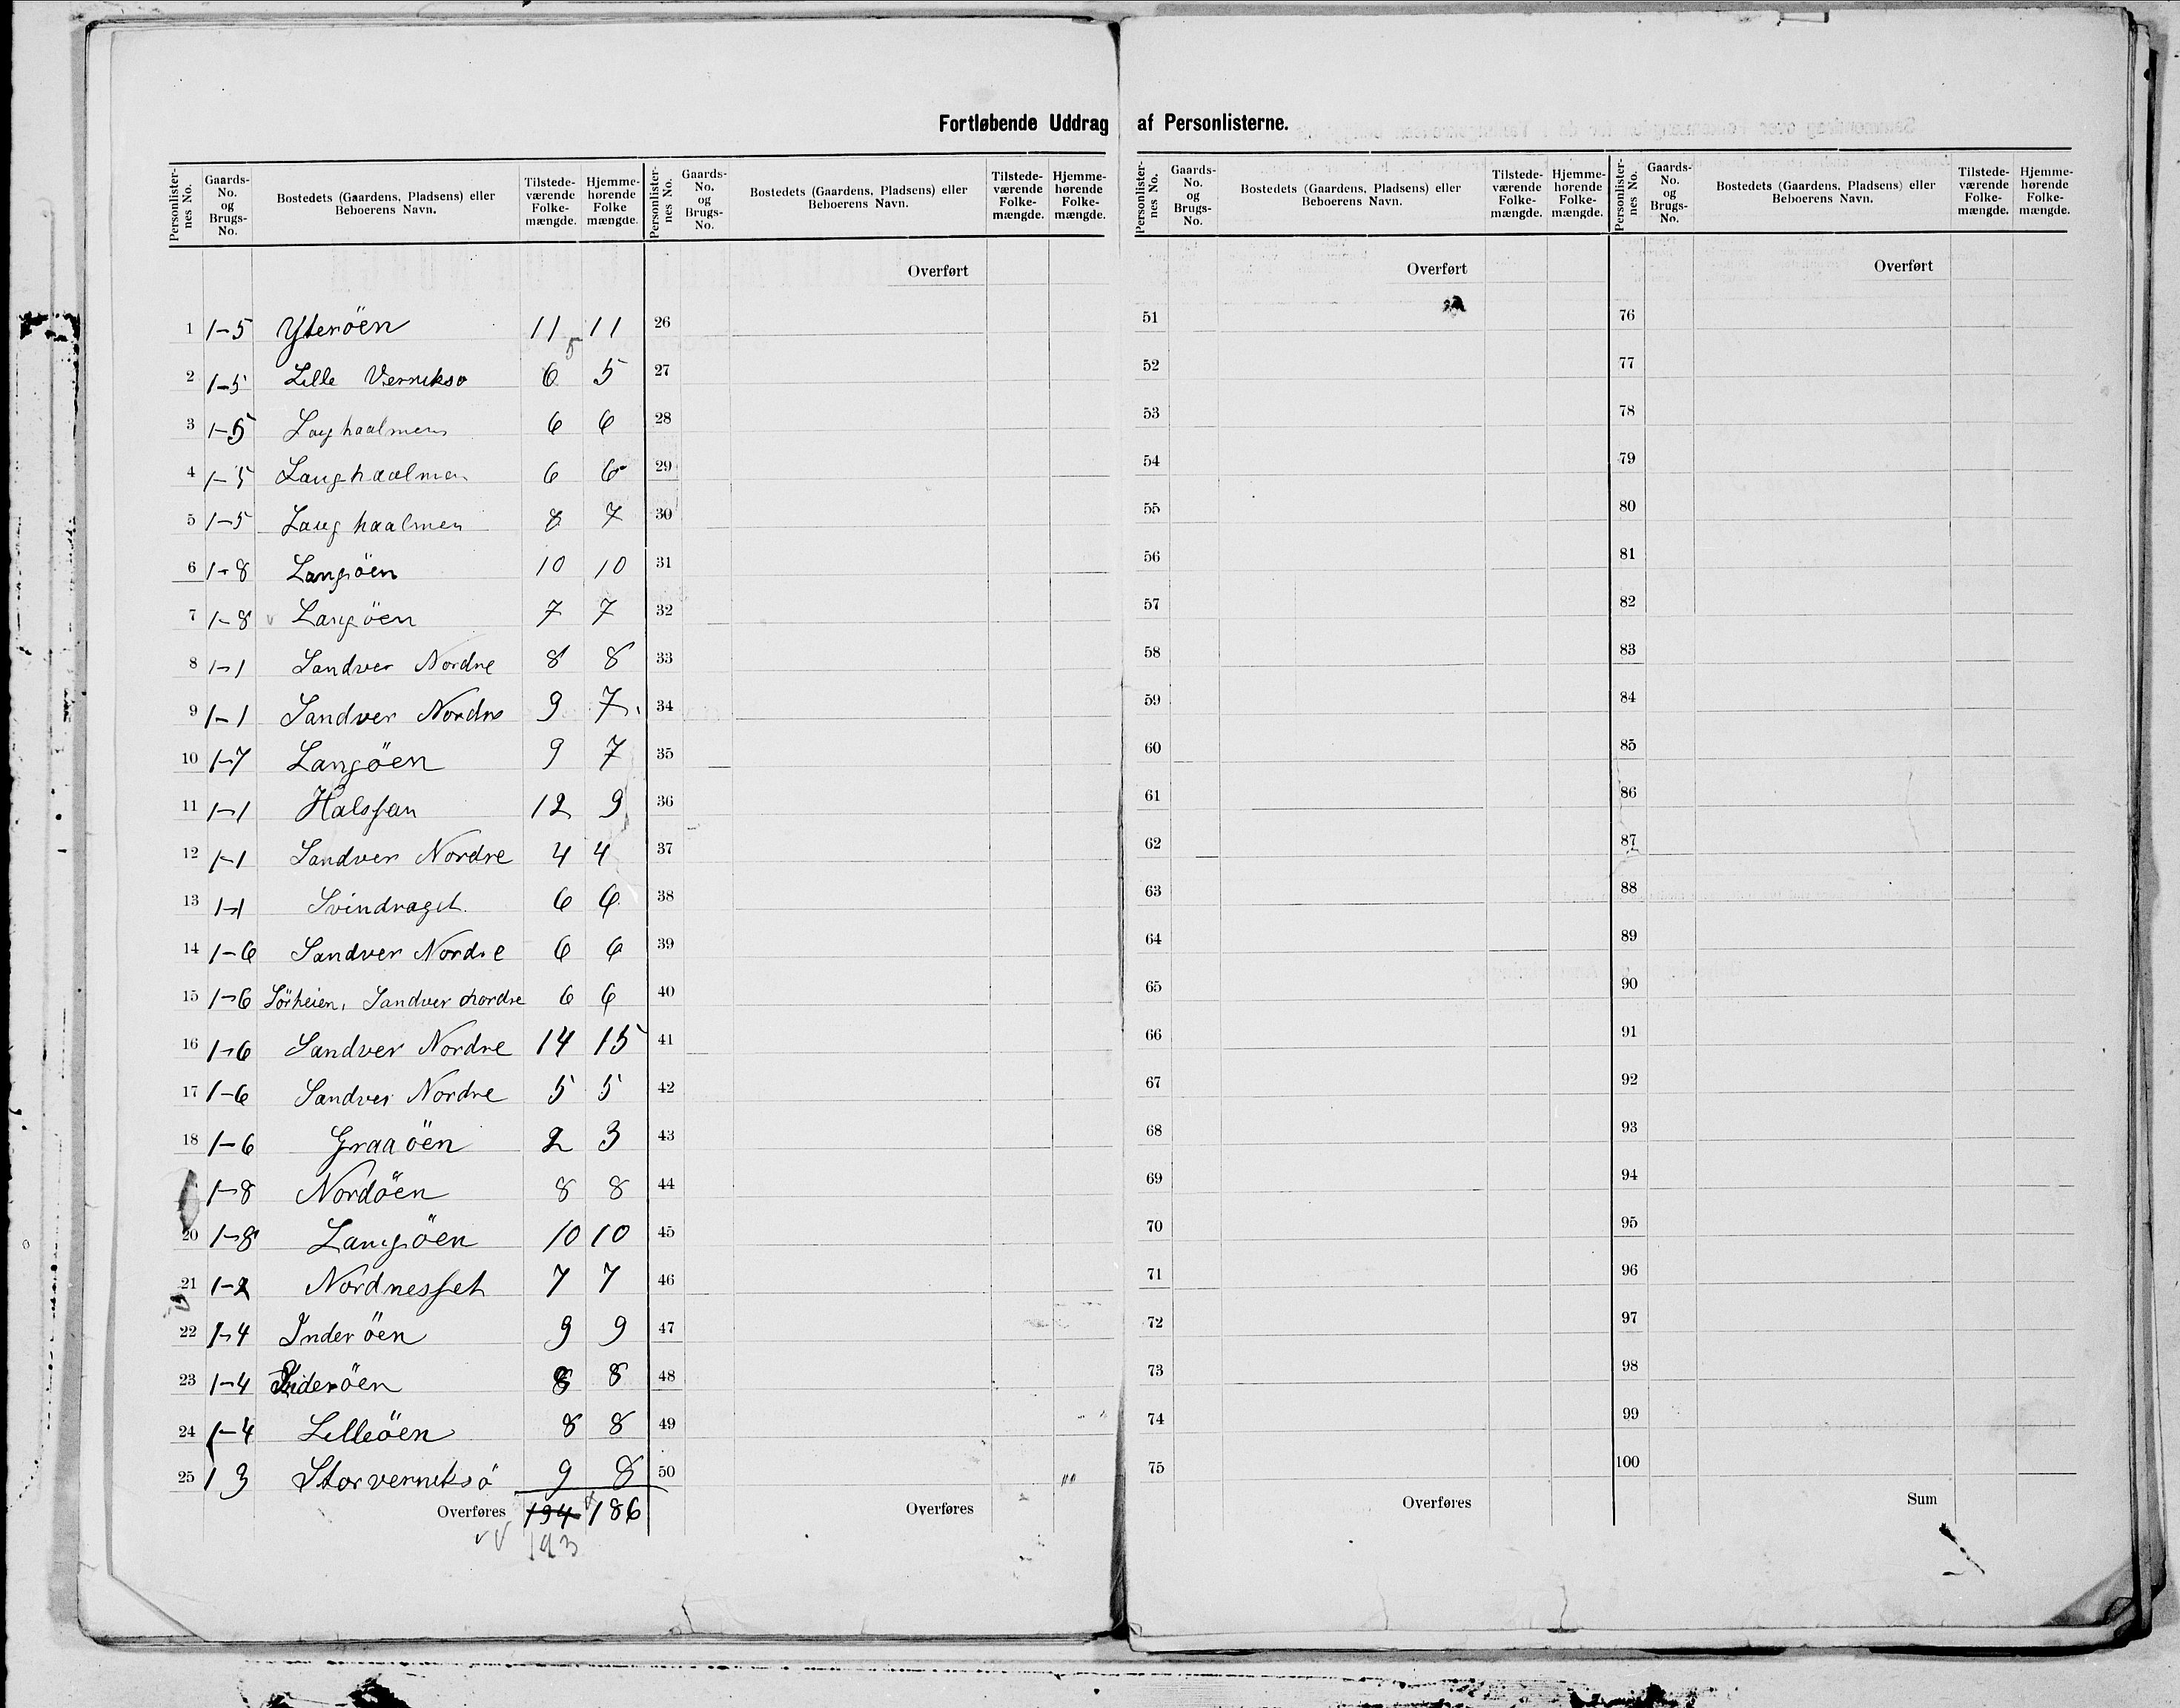 Fortløbende Uddrag af Personlisterne.
Personlister-nes No. Gaards-No. og Brugs-No. Bostedets (Gaardens, Pladsens) eller Beboerens Navn. Tilstede-værende Folke-mængde. Hjemme-hørende Folke-mængde.
Personlister-nes No. Gaards-No. og Brugs-No. Bostedets (Gaardens, Pladsens) eller Beboerens Navn. Tilstede-værende Folke-mængde. Hjemme-hørende Folke-mængde.
Personlister-nes No. Gaards-No. og Brugs-No. Bostedets (Gaardens, Pladsens) eller Beboerens Navn. Tilstede-værende Folke-mængde. Hjemme-hørende Folke-mængde.
Personlister-nes No. Gaards-No. og Brugs-No. Bostedets (Gaardens, Pladsens) eller Beboerens Navn. Tilstede-værende Folke-mængde. Hjemme-hørende Folke-mængde.
Overført Overført Overført
1 1-5 Yteröen 11 11 26 51 76
2 1-5 Lille Verrukso 6 5 5 27 52 77
3 1-5 Laghaalmen 6 6 28 53 78
4 1-5 Langhaalmen 6 6 29 54 79
5 1-5 Lang haalmen 8 7 30 55 80
6 1-8 Langöen 10 10 31 56 81
7 1-8 Langöen 7 7 32 57 82
8 1-1 Sandver Nordre 8 8 33 58 83
9 1-1 Sandver Nordre 9 7 34 59 84
10 1-7 Langöen 9 7 35 60 85
11 1-1 Halsfan 12 9 36 61 86
12 1-1 Sandver Nordre 4 4 37 62 87
13 1-1 Svindraget 6 6 38 63 88
14 1-6 Sandver Nordre 6 6 39 64 89
15 1-6 Sörheien, Sandver nordre 6 6 40 65 90
16 1-6 Sandver Nordre 14 15 41 66 91
17 1-6 Sandver Nordre 5 5 42 67 92
18 1-6 Graaöen 2 3 43 68 93
1-8 Nordöen 8 8 44 69 94
20 1-8 Langöen 10 10 45 70 95
21 1-2 Nordnesset 7 7 46 71 96
22 1-4 Inderöen 9 9 47 72 97
23 1-4 Inderöen 8 8 48 73 98
24 1-4 Lilleöen 8 8 49 74 99
25 1 3 Storverruksö 9 8 50 75 100
Overføres 194 186 Overføres Overføres Sum
193